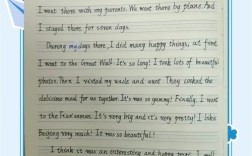 I went there with my parents. We went there by plane. And
I stayed there for seven days.
During my days there, I did many happy things, at first,
I went to the Great Wall. It's so long! I took lots of beautiful
photos. Then I visited my uncle and aunt. They cooked the
delicious meal for us together. It's was so yummy! Finally, I went
to the Tian'anmen. It's very big and it's very pretty! I like
Beijing very much! It was so beautiful!
I think it was an interesting and happy trip! I will